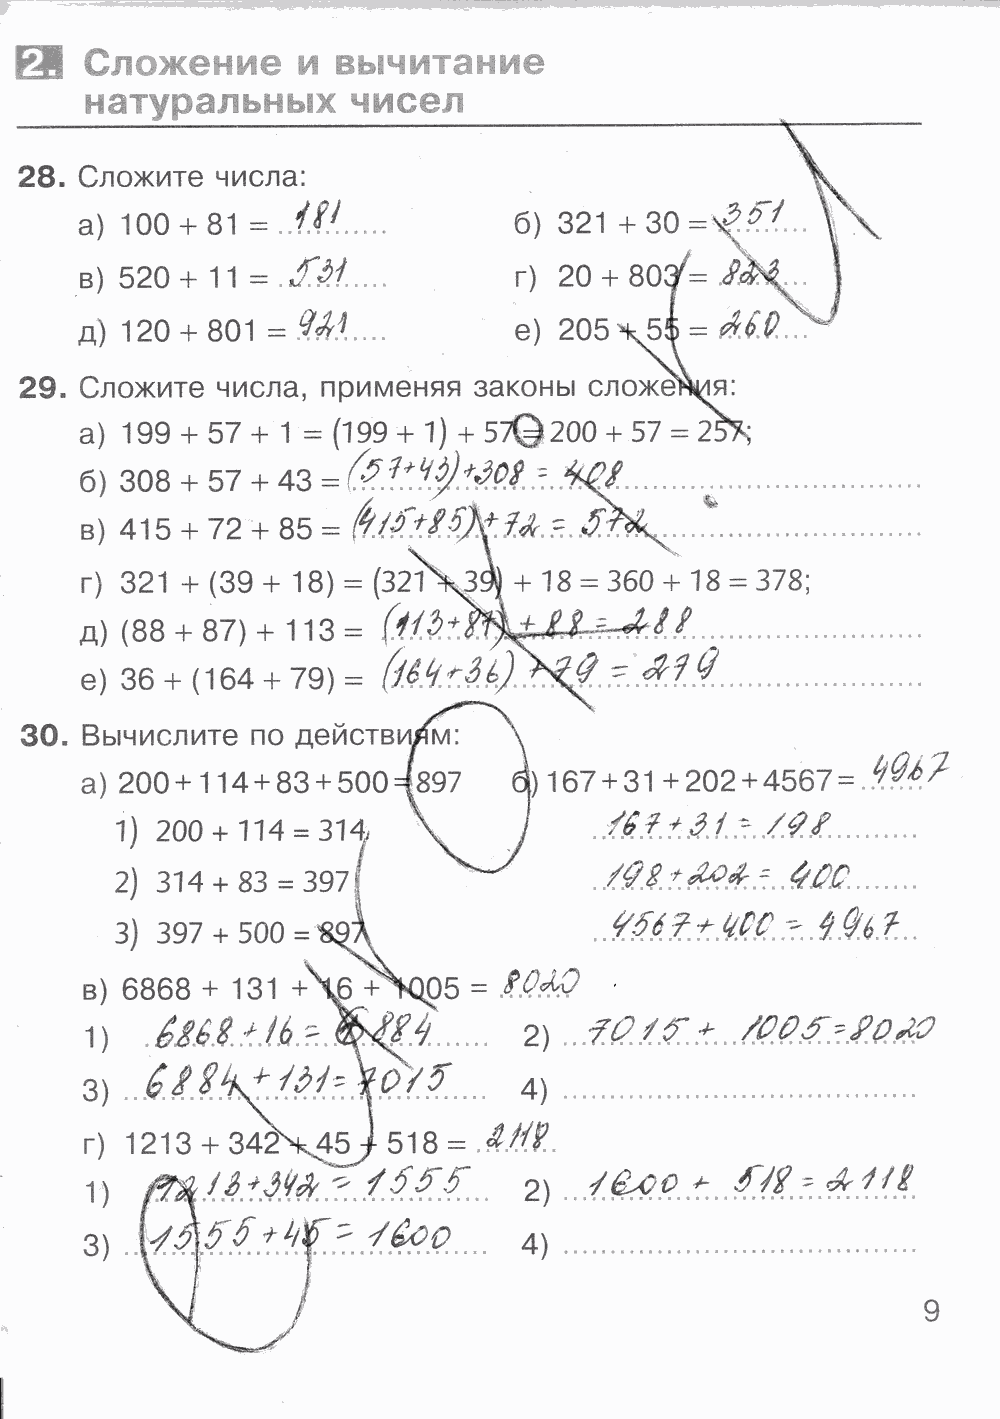 2. Сложение и вычитание
натуральных чисел
28. Сложите числа:
а) 100 + 81 = 181
б) 321 + 30 = 351
в) 520 + 11 = 531
г) 20 + 803 = 823
д) 120 + 801 = 921
е) 205 + 55 = 260
29. Сложите числа, применяя законы сложения:
а) 199 + 57 + 1 = (199 + 1) + 57 = 200 + 57 = 257;
б) 308 + 57 + 43 = (57+43)+308 = 408
в) 415 + 72 + 85 = (415+85)+72 = 572
г) 321 + (39 + 18) = (321 + 39) + 18 = 360 + 18 = 378;
д) (88 + 87) + 113 = (113+87) + 88 = 288
е) 36 + (164 + 79) = (164+36) +79 = 279
30. Вычислите по действиям:
а) 200 + 114 + 83 + 500 = 897
б) 167 + 31 + 202 + 4567 = 4967
1) 200 + 114 = 314
167+31 = 198
2) 314 + 83 = 397
198+202 = 400
3) 397 + 500 = 897
4567+400 = 4967
в) 6868 + 131 + 16 + 1005 = 8020
1) 6868+16 = 6884
2) 7015 + 1005=8020
3) 6884 +131= 7015
4)
г) 1213 + 342 + 45 + 518 = 2118
1) 1213+342 = 1555
2) 1600 + 518 = 2118
3) 1555+45 = 1600
4)
9